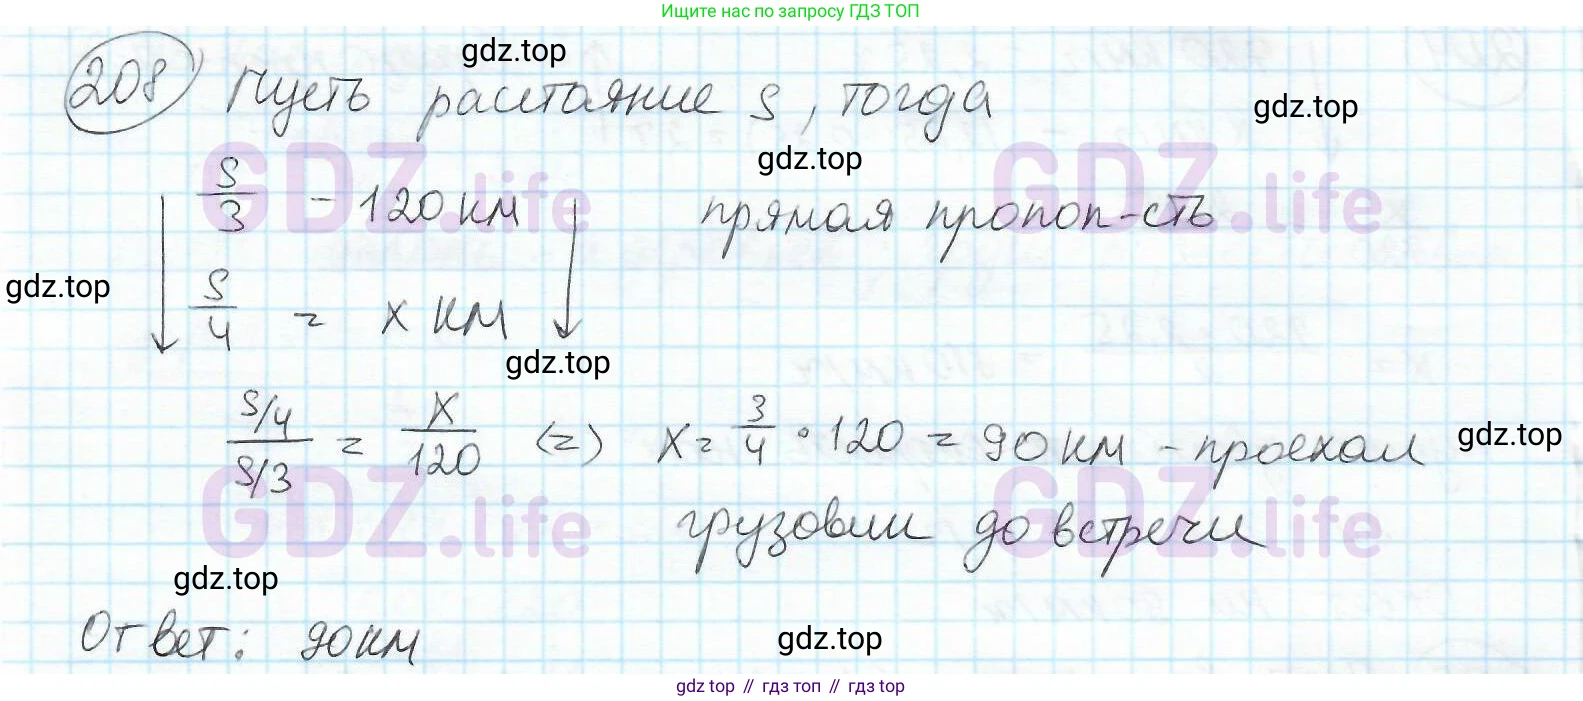 Ищите нас по запросу ГДЗ ТОП
gdz.top
208) Пусть расстояние S, тогда
gdz.top
gdz.top
GDZ.life GDZ.life
S/3 - 120 км прямая пропоп-сть
gdz.top
S/4 = x км
gdz.top
(S/4)/(S/3) = x/120 (=) x = 3/4 · 120 = 90 км - проехал
gdz.top
GDZ.life GDZ.life
грузовик до встречи
gdz.top
Ответ: 90 км
gdz.top
gdz top // гдз топ // gdz top